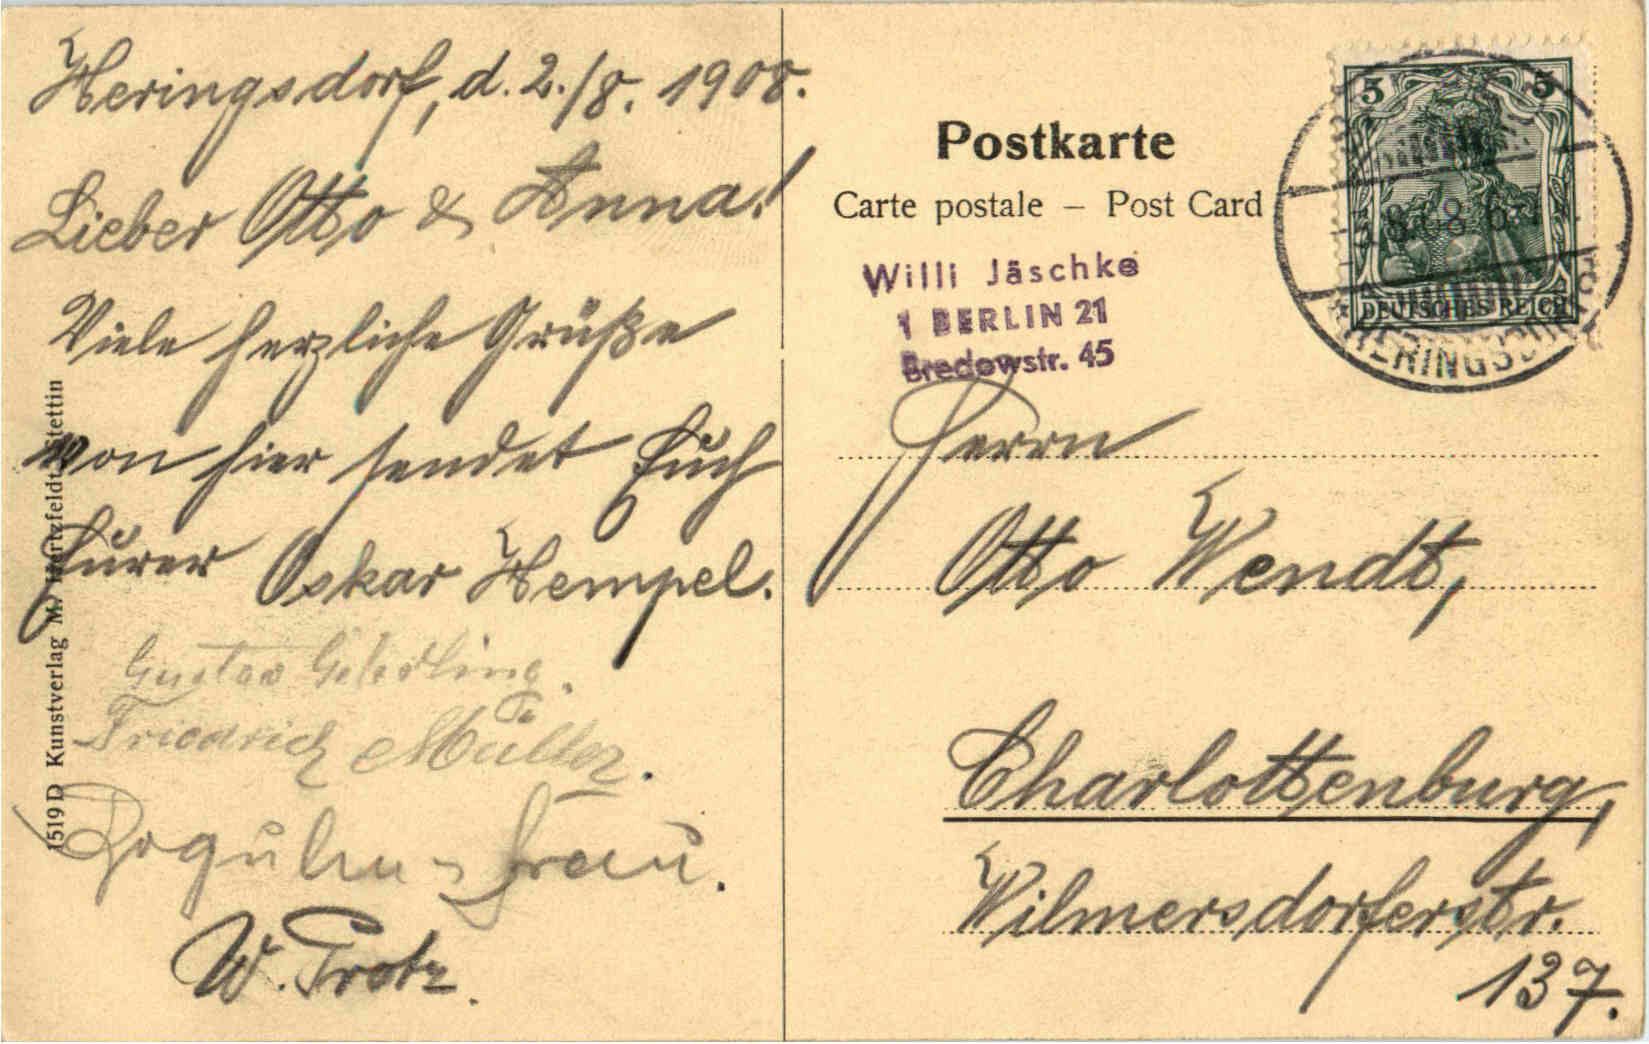 Heringsdorf, d. 2./8. 1908.
Lieber Otto & Anna!
Viele herzliche Grüße
von hier sendet Euch
Eurer Oskar Hempel.
Gustav
Friedrich Müller.
Frau.
W. Trotz.
1519 D Kunstverlag M. Hertzfeldt, Stettin
Postkarte
Carte postale – Post Card
Willi Jäschke
1 BERLIN 21
Bredowstr. 45
5 5
DEUTSCHES REICH
8.08.6-7
HERINGSDORF
Herrn
Otto Wendt,
Charlottenburg,
Wilmersdorferstr.
137.